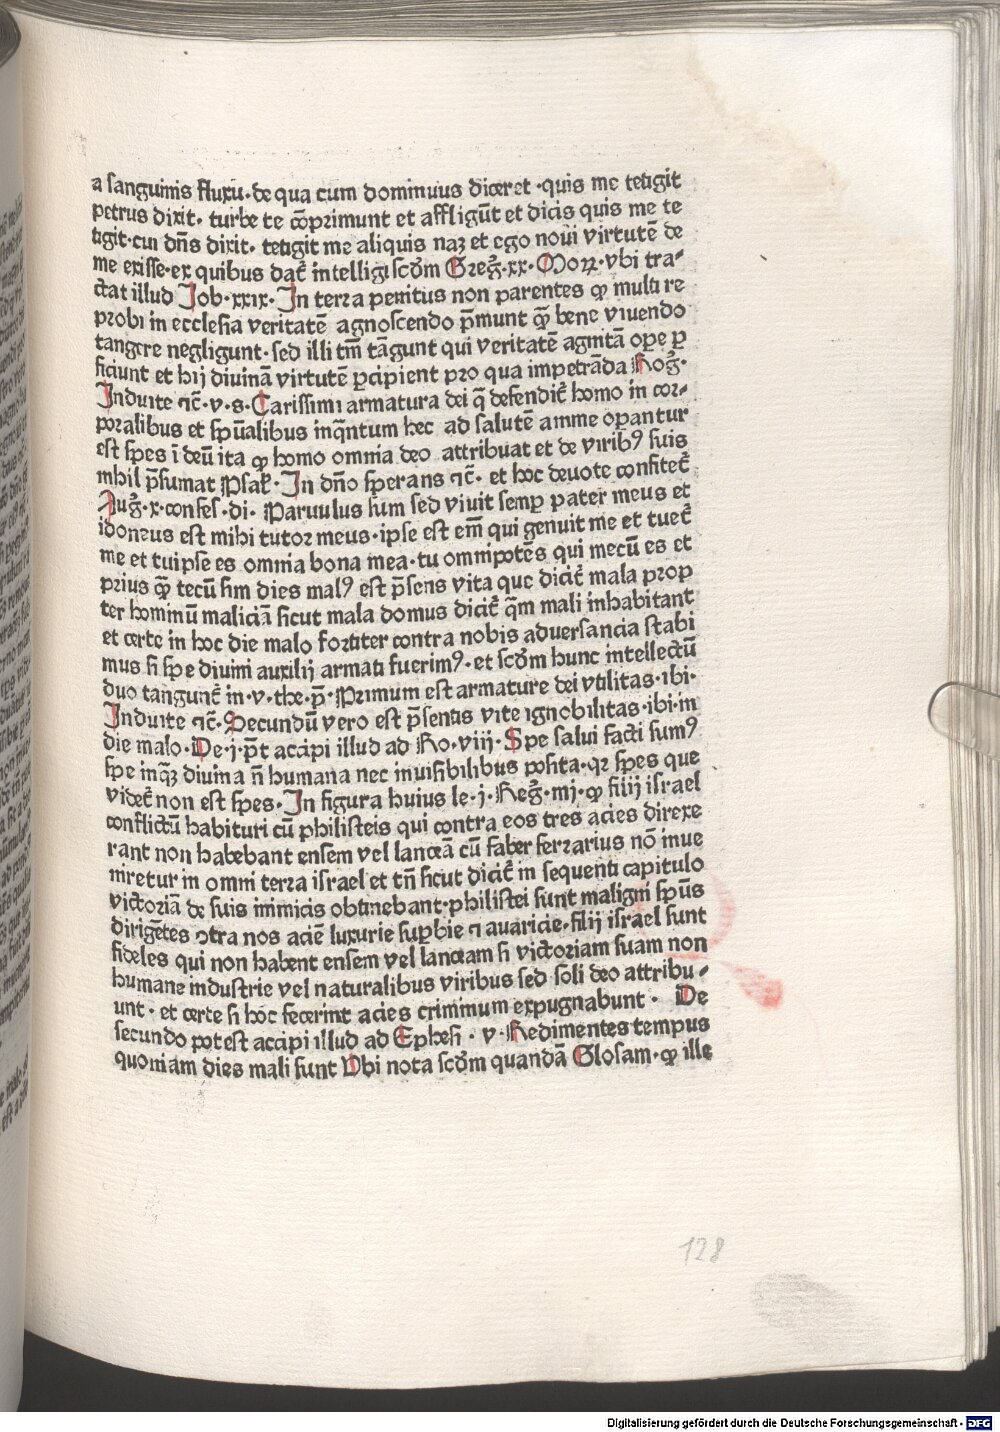 a sanguinis fluxu·de qua cum dominuus diceret·quis me tetigit
petrus dixit· turbe te cōprimunt et affligūt et dicis quis me te
tigit·cui dn̄s dixit· tetigit me aliquis naꝫ et ego noui virtutē de
me exisse·ex quibus dat᷑ intelligi scd̄m Greg̃·xx·Moꝝ·vbi tra⸗
ctat illud Job·xxix·In terra penitus non parentes ꝙ multi re
probi in ecclesia veritatē agnoscendo p̄munt ꝙ̄ bene viuendo
tangere negligunt·sed illi tm̄ tāgunt qui veritatē agnitā oꝑe ꝑ
ficiunt et hij diuinā virtutē ꝑcipient pro qua impetrāda Rog̃·
Induite ⁊c̄·v·s·Carissimi armatura dei q̄ defendit᷑ homo in cor⸗
poralibus et sp̄ualibus inq̄ntum hec ad salutē anime oꝑantur
est spes ī deū ita ꝙ homo omnia deo attribuat et de virib⁹ suis
nihil p̄sumat Psal̄·In dn̄o sperans ⁊c̄· et hoc deuote confitet᷑
Aug̃·x·confes·di· Paruulus sum sed viuit semꝑ pater meus et
idoneus est mihi tutor meus·ipse est em̄ qui genuit me et tuet᷑
me et tuipse es omnia bona mea·tu omnipotēs qui mecū es et
prius ꝙ̄ tecū sim dies mal⁹ est p̄sens vita que dicit᷑ mala prop
ter hominū maliciā sicut mala domus dicit᷑ q̄m mali inhabitant
et certe in hoc die malo fortiter contra nobis aduersancia stabi
mus si spe diuini auxilij armati fuerim⁹·et scd̄m hunc intellectū
duo tangunt᷑ in·v·the·p̄·Primum est armature dei vtilitas·ibi·
Induite ⁊c̄·Secundū vero est p̄sentis vite ignobilitas·ibi·in
die malo·De·j·p̄t accipi illud ad Ro·viij·Spe salui facti sum⁹
spe inqꝫ diuina n̄ humana nec inuisibilibus posita·qꝛ spes que
videt᷑ non est spes·In figura huius le·j·Reg̃·xiij·ꝙ filij israel
conflictū habituri cū philisteis qui contra eos tres acies direxe
rant non habebant ensem vel lanceā cū faber ferrarius nō inue
niretur in omni terra israel et tn̄ sicut dicit᷑ in sequenti capitulo
victoriā de suis inimicis obtinebant·philistei sunt maligni sp̄us
dirigētes ↄtra nos aciē luxurie suꝑbie ⁊ auaricie·filij israel sunt
fideles qui non habent ensem vel lanceam si victoriam suam non
humane industrie vel naturalibus viribus sed soli deo attribu⸗
unt· et certe si hoc fecerint acies criminum expugnabunt· De
secundo potest accipi illud ad Ephesi·v·Redimentes tempus
quoniam dies mali sunt Vbi nota scd̄m quandā Glosam·ꝙ ille
128
Digitalisierung gefördert durch die Deutsche Forschungsgemeinschaft · DFG